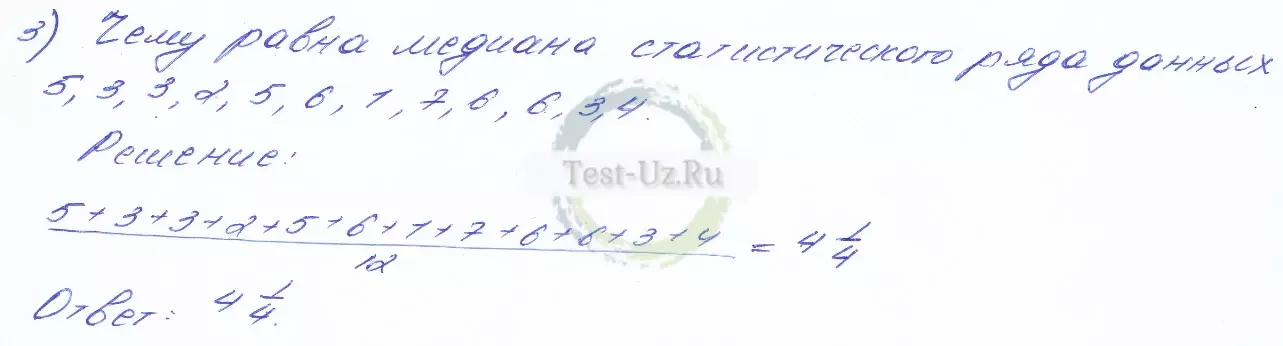 3) Чему равна медиана статистического ряда данных
5, 3, 3, 2, 5, 6, 1, 7, 6, 6, 3, 4.
Решение:
Test-Uz.Ru
5+3+3+2+5+6+1+7+6+6+3+4
12
= 4 1/4
Ответ: 4 1/4.